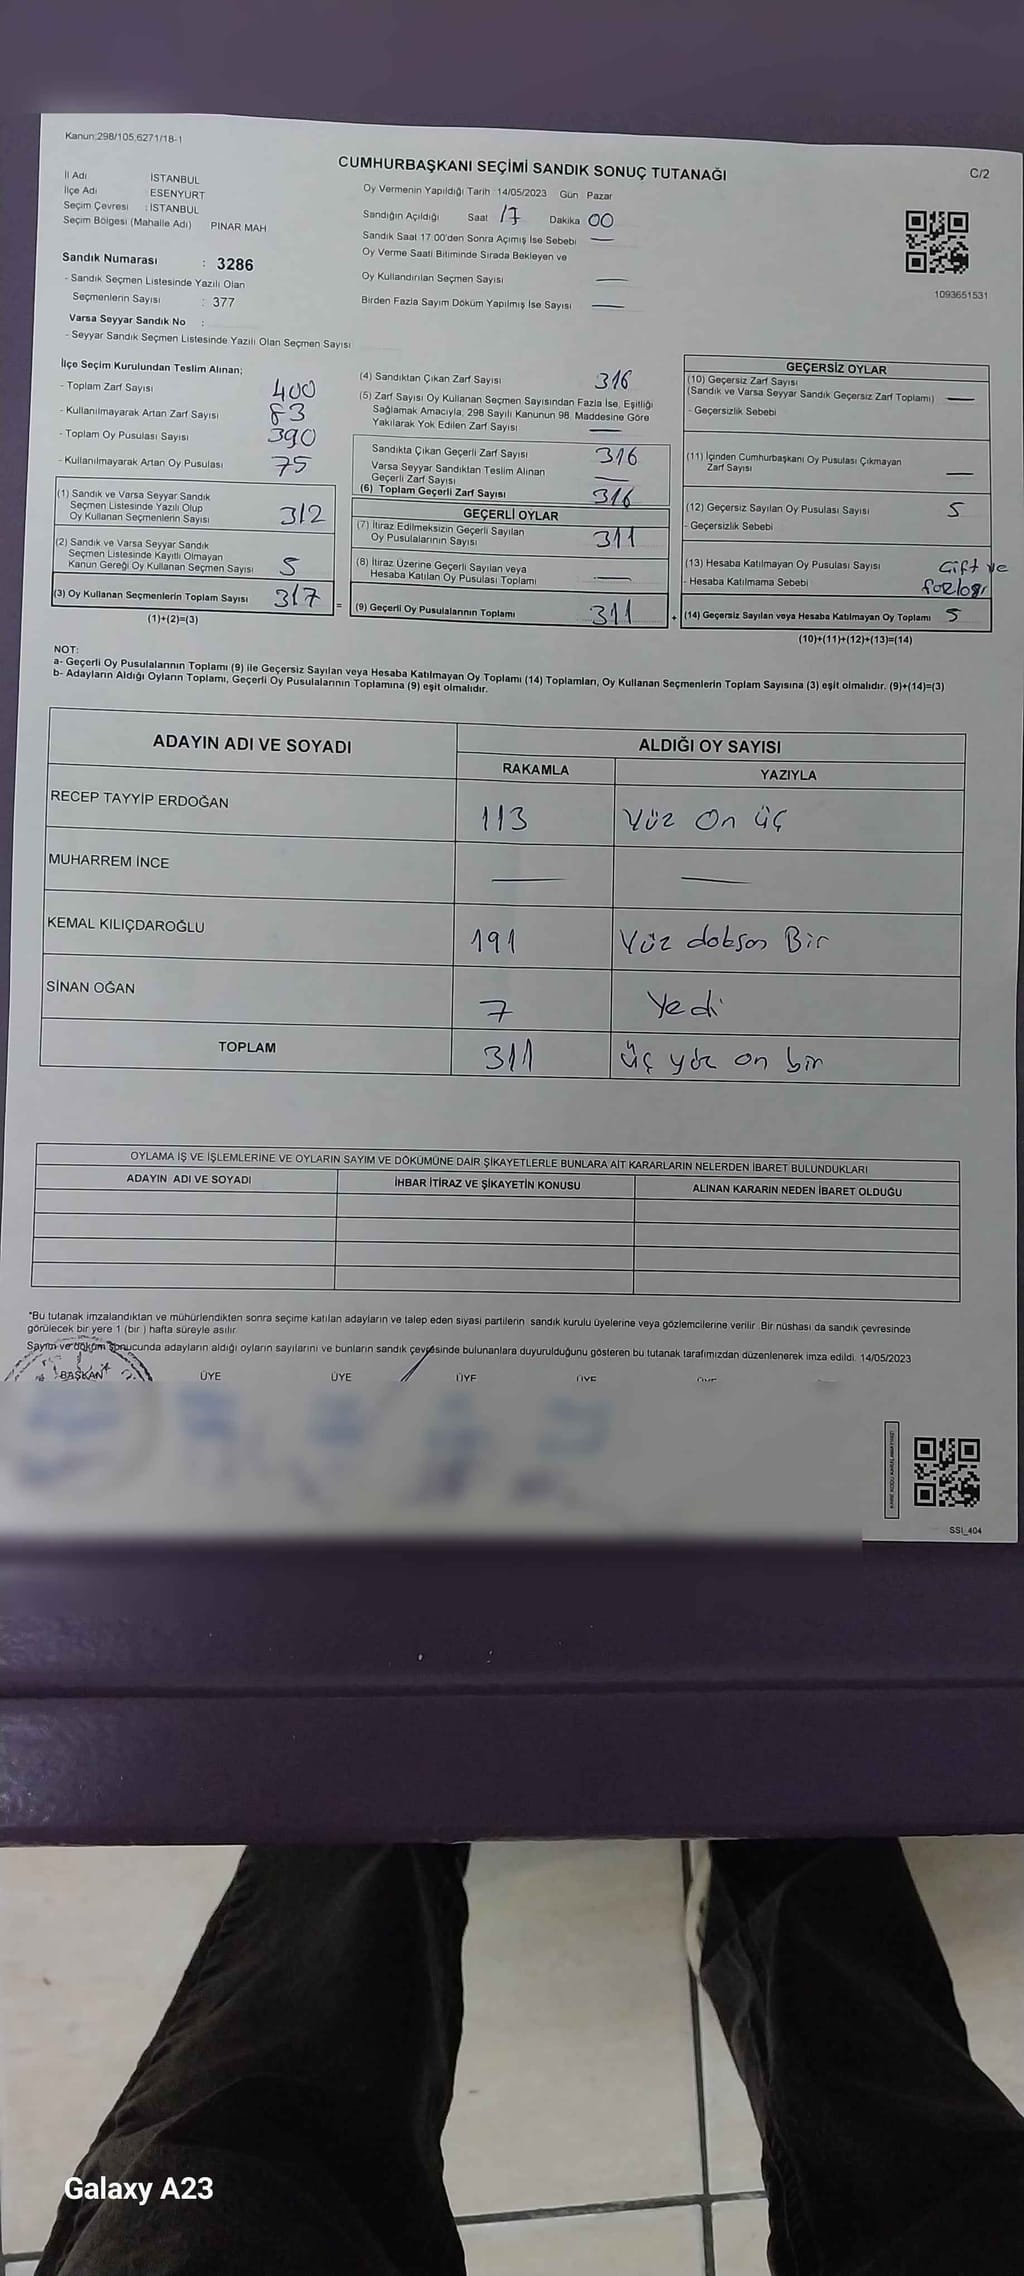 Kanun:298/105,6271/18-1
CUMHURBAŞKANI SEÇİMİ SANDIK SONUÇ TUTANAĞI
C/2
İl Adı İSTANBUL
İlçe Adı ESENYURT
Seçim Çevresi : İSTANBUL
Seçim Bölgesi (Mahalle Adı) PINAR MAH
Sandık Numarası : 3286
- Sandık Seçmen Listesinde Yazılı Olan
Seçmenlerin Sayısı : 377
Varsa Seyyar Sandık No :
- Seyyar Sandık Seçmen Listesinde Yazılı Olan Seçmen Sayısı
Oy Vermenin Yapıldığı Tarih 14/05/2023 Gün Pazar
Sandığın Açıldığı Saat 17 Dakika 00
Sandık Saat 17:00'den Sonra Açımış İse Sebebi —
Oy Verme Saati Bitiminde Sırada Bekleyen ve
Oy Kullandırılan Seçmen Sayısı —
Birden Fazla Sayım Döküm Yapılmış İse Sayısı —
1093651531
İlçe Seçim Kurulundan Teslim Alınan;
- Toplam Zarf Sayısı 400
- Kullanılmayarak Artan Zarf Sayısı 83
- Toplam Oy Pusulası Sayısı 390
- Kullanılmayarak Artan Oy Pusulası 75
(1) Sandık ve Varsa Seyyar Sandık
Seçmen Listesinde Yazılı Olup
Oy Kullanan Seçmenlerin Sayısı 312
(2) Sandık ve Varsa Seyyar Sandık
Seçmen Listesinde Kayıtlı Olmayan
Kanun Gereği Oy Kullanan Seçmen Sayısı 5
(3) Oy Kullanan Seçmenlerin Toplam Sayısı 317 =
(1)+(2)=(3)
(4) Sandıktan Çıkan Zarf Sayısı 316
(5) Zarf Sayısı Oy Kullanan Seçmen Sayısından Fazla İse, Eşitliği
Sağlamak Amacıyla, 298 Sayılı Kanunun 98. Maddesine Göre
Yakılarak Yok Edilen Zarf Sayısı —
Sandıkta Çıkan Geçerli Zarf Sayısı 316
Varsa Seyyar Sandıktan Teslim Alınan
Geçerli Zarf Sayısı —
(6) Toplam Geçerli Zarf Sayısı 316
GEÇERLİ OYLAR
(7) İtiraz Edilmeksizin Geçerli Sayılan
Oy Pusulalarının Sayısı 311
(8) İtiraz Üzerine Geçerli Sayılan veya
Hesaba Katılan Oy Pusulası Toplamı —
(9) Geçerli Oy Pusulalarının Toplamı 311 +
GEÇERSİZ OYLAR
(10) Geçersiz Zarf Sayısı
(Sandık ve Varsa Seyyar Sandık Geçersiz Zarf Toplamı) —
- Geçersizlik Sebebi
(11) İçinden Cumhurbaşkanı Oy Pusulası Çıkmayan
Zarf Sayısı —
(12) Geçersiz Sayılan Oy Pusulası Sayısı 5
- Geçersizlik Sebebi
(13) Hesaba Katılmayan Oy Pusulası Sayısı Çift ve
- Hesaba Katılmama Sebebi
(14) Geçersiz Sayılan veya Hesaba Katılmayan Oy Toplamı 5
(10)+(11)+(12)+(13)=(14)
NOT:
a- Geçerli Oy Pusulalarının Toplamı (9) ile Geçersiz Sayılan veya Hesaba Katılmayan Oy Toplamı (14) Toplamları, Oy Kullanan Seçmenlerin Toplam Sayısına (3) eşit olmalıdır. (9)+(14)=(3)
b- Adayların Aldığı Oyların Toplamı, Geçerli Oy Pusulalarının Toplamına (9) eşit olmalıdır.
ADAYIN ADI VE SOYADI ALDIĞI OY SAYISI
RAKAMLA YAZIYLA
RECEP TAYYİP ERDOĞAN 113 Yüz On üç
MUHARREM İNCE — —
KEMAL KILIÇDAROĞLU 191 Yüz doksan Bir
SİNAN OĞAN 7 Yedi
TOPLAM 311 üç yüz on bir
OYLAMA İŞ VE İŞLEMLERİNE VE OYLARIN SAYIM VE DÖKÜMÜNE DAİR ŞİKAYETLERLE BUNLARA AİT KARARLARIN NELERDEN İBARET BULUNDUKLARI
ADAYIN ADI VE SOYADI İHBAR İTİRAZ VE ŞİKAYETİN KONUSU ALINAN KARARIN NEDEN İBARET OLDUĞU
*Bu tutanak imzalandıktan ve mühürlendikten sonra seçime katılan adayların ve talep eden siyasi partilerin sandık kurulu üyelerine veya gözlemcilerine verilir. Bir nüshası da sandık çevresinde
görülecek bir yere 1 (bir ) hafta süreyle asılır.
Sayım ve döküm sonucunda adayların aldığı oyların sayılarını ve bunların sandık çevresinde bulunanlara duyurulduğunu gösteren bu tutanak tarafımızdan düzenlenerek imza edildi. 14/05/2023
BAŞKAN ÜYE ÜYE ÜYE ÜYE
SSI_404
Galaxy A23